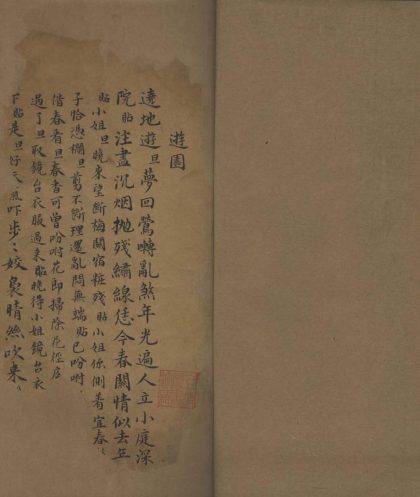 遊園
遶地遊旦夢回鶯囀亂煞年光遍人立小庭深
院貼注盡沉烟抛残繡線恁今春關情似去年
貼小姐旦曉來望斷梅關宿粧残貼小姐你側看宜春
子恰憑欄旦剪不斷理還亂悶無端貼已吩咐
借春看旦春香可曾吩咐花郎掃除花徑広
過了旦取鏡台衣服過來貼曉得小姐鏡台衣
下貼是旦好天氣吓步〻姣裊晴絲吹來